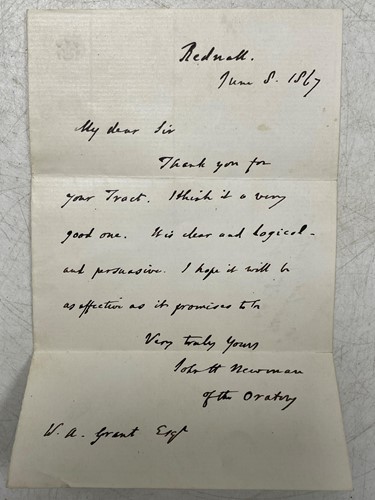 Rednall.
June 8. 1867
My dear Sir
Thank you for
your Tract. I think it a very
good one. It is clear and logical -
and persuasive. I hope it will be
as effective as it promises to be
Very truly Yours
John H Newman
of the Oratory
W. A. Grant Esqr